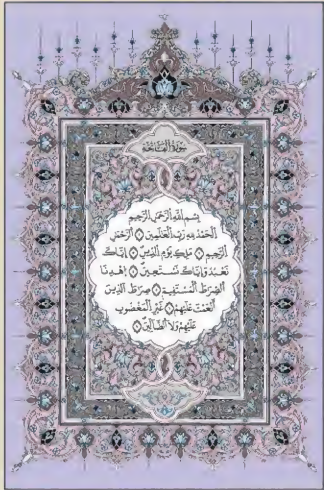 سُورَةُ الْفَاتِحَةِ
بِسْمِ اللَّهِ الرَّحْمَٰنِ الرَّحِيمِ
الْحَمْدُ لِلَّهِ رَبِّ الْعَالَمِينَ ۝ الرَّحْمَٰنِ
الرَّحِيمِ ۝ مَالِكِ يَوْمِ الدِّينِ ۝ إِيَّاكَ
نَعْبُدُ وَإِيَّاكَ نَسْتَعِينُ ۝ اهْدِنَا
الصِّرَاطَ الْمُسْتَقِيمَ ۝ صِرَاطَ الَّذِينَ
أَنْعَمْتَ عَلَيْهِمْ ۝ غَيْرِ الْمَغْضُوبِ
عَلَيْهِمْ وَلَا الضَّالِّينَ ۝